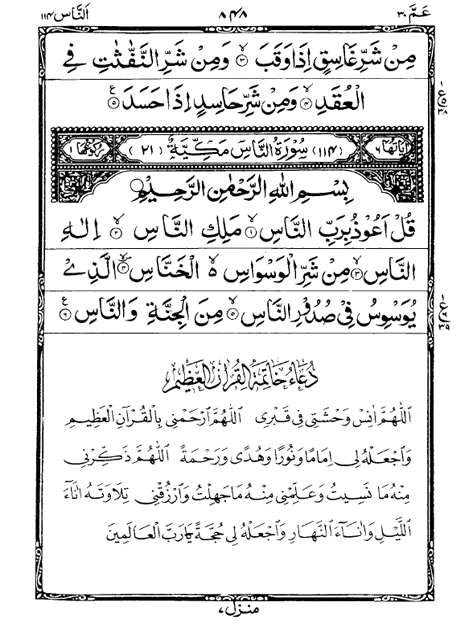 عَمَّ ٣٠ ٨٤٨ اَلنَّاس ١١٤
مِنْ شَرِّ غَاسِقٍ اِذَا وَقَبَ ۙ﴿٣﴾ وَمِنْ شَرِّ النَّفّٰثٰتِ فِى
الْعُقَدِ ۙ﴿٤﴾ وَمِنْ شَرِّ حَاسِدٍ اِذَا حَسَدَ ﴿٥﴾
اٰيَاتُهَا ٦ (١١٤) سُوْرَةُ النَّاسِ مَكِّيَّةٌ (٢١) رُكُوْعُهَا ١
بِسْمِ اللهِ الرَّحْمٰنِ الرَّحِيْمِ
قُلْ اَعُوْذُ بِرَبِّ النَّاسِ ۙ﴿١﴾ مَلِكِ النَّاسِ ۙ﴿٢﴾ اِلٰهِ
النَّاسِ ۙ﴿٣﴾ مِنْ شَرِّ الْوَسْوَاسِ ۵ الْخَنَّاسِ ۙ﴿٤﴾ الَّذِىْ
يُوَسْوِسُ فِىْ صُدُوْرِ النَّاسِ ۙ﴿٥﴾ مِنَ الْجِنَّةِ وَالنَّاسِ ﴿٦﴾
دُعَاءُ خَاتِمَةِ الْقُرْاٰنِ الْعَظِيْمِ
اَللّٰهُمَّ اٰنِسْ وَحْشَتِىْ فِىْ قَبْرِىْ اَللّٰهُمَّ ارْحَمْنِىْ بِالْقُرْاٰنِ الْعَظِيْمِ
وَاجْعَلْهُ لِىْ اِمَامًا وَّنُوْرًا وَّهُدًى وَّرَحْمَةً اَللّٰهُمَّ ذَكِّرْنِىْ
مِنْهُ مَا نَسِيْتُ وَعَلِّمْنِىْ مِنْهُ مَا جَهِلْتُ وَارْزُقْنِىْ تِلَاوَتَهٗ اٰنَآءَ
اللَّيْلِ وَاٰنَآءَ النَّهَارِ وَاجْعَلْهُ لِىْ حُجَّةً يَّارَبَّ الْعَالَمِيْنَ
منزل ٧